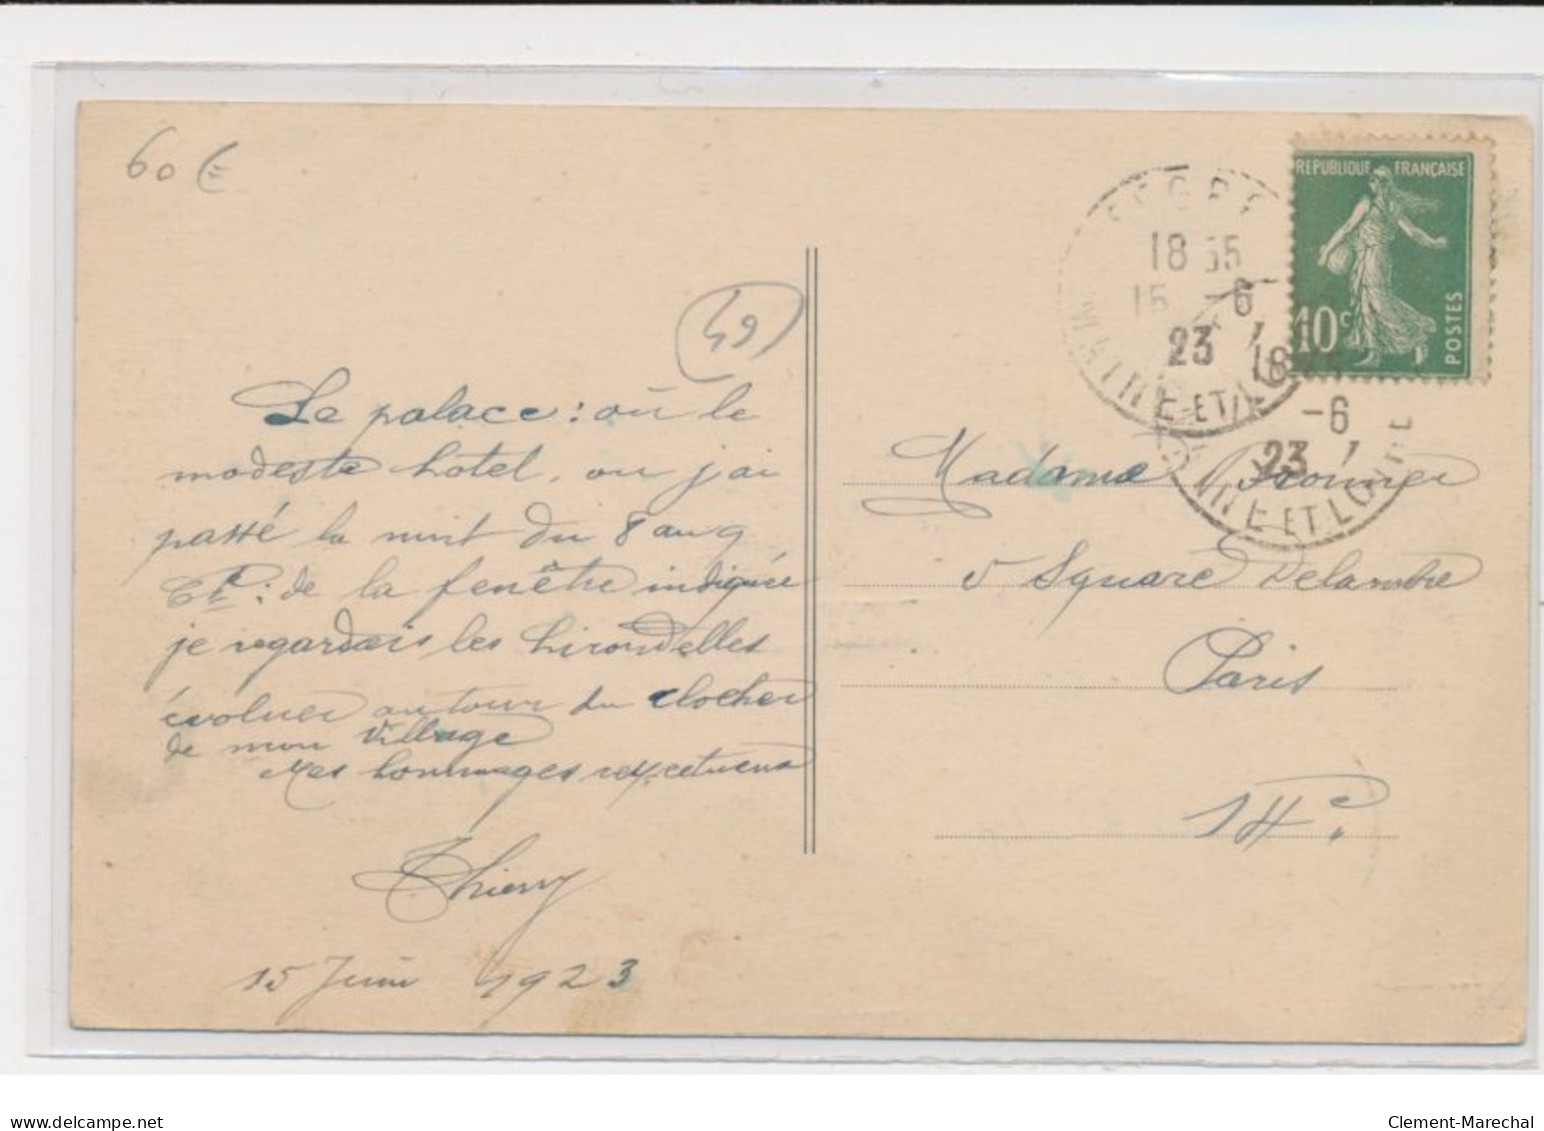 60 €
49
Le palace : où le
modeste hotel, ou j'ai
passé la nuit du 8 au 9
Ct : de la fenêtre indiquée
je regardais les hirondelles
évoluer autour du clocher
de mon village
Mes hommages respectueux
Thierry
15 Juin 1923
REPUBLIQUE FRANÇAISE
10c
POSTES
SEGRE
18 55
15 -6
23
MAINE-ET-L
18
-6
23
INE ET LOIRE
Madame
5 Square Delambre
Paris
14e
delcampe.net
Clement-Marechal